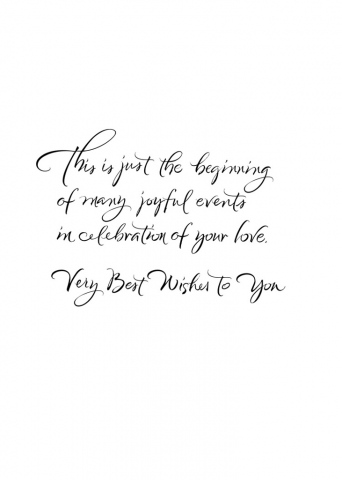 This is just the beginning
of many joyful events
in celebration of your love.
Very Best Wishes to You